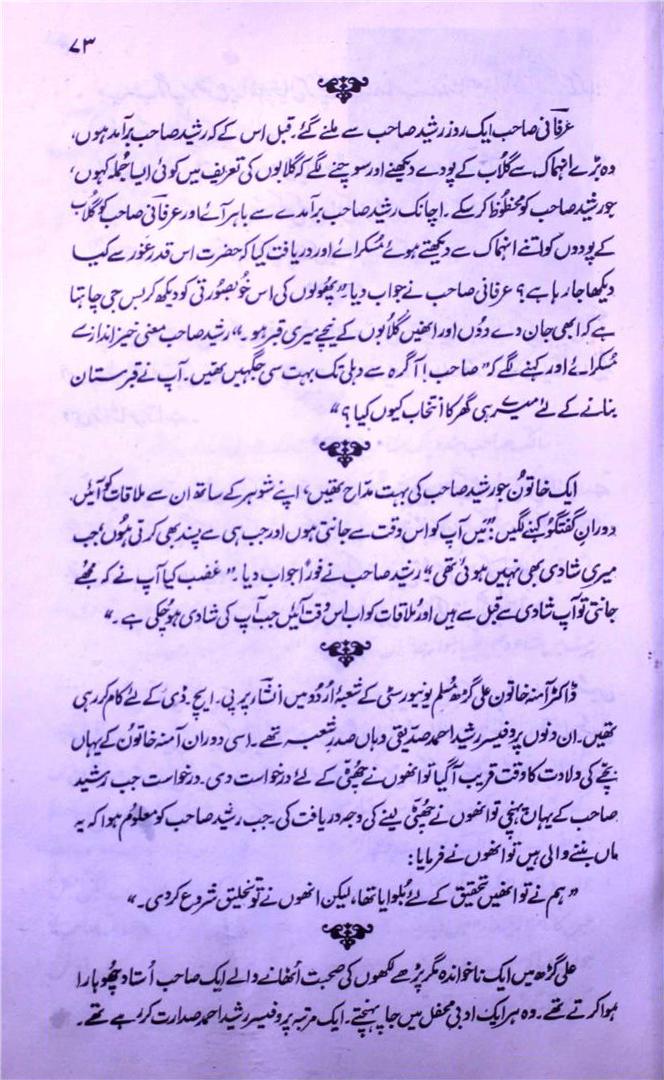 ۷۳
عرفانی صاحب ایک روز رشید صاحب سے ملنے گئے۔ قبل اس کے کہ رشید صاحب برآمد ہوں،
وہ بڑے انہماک سے گلاب کے پودے دیکھنے اور سوچنے لگے کہ گلابوں کی تعریف میں کوئی ایسا جملہ کہوں،
جو رشید صاحب کو محظوظ کر سکے۔ اچانک رشید صاحب برآمدے سے باہر آئے اور عرفانی صاحب کو گلاب
کے پودوں کو اتنے انہماک سے دیکھتے ہوئے مسکرائے اور دریافت کیا کہ حضرت اس قدر غور سے کیا
دیکھا جا رہا ہے؟ عرفانی صاحب نے جواب دیا۔ "پھولوں کی اس خوبصورتی کو دیکھ کر بس جی چاہتا
ہے کہ ابھی جان دے دوں اور انھیں گلابوں کے نیچے میری قبر ہو۔" رشید صاحب معنی خیز انداز سے
مسکرائے اور کہنے لگے کہ "صاحب! آگرہ سے دہلی تک بہت سی جگہیں تھیں۔ آپ نے قبرستان
بنانے کے لئے میرے ہی گھر کا انتخاب کیوں کیا؟"
ایک خاتون جو رشید صاحب کی بہت مدّاح تھیں، اپنے شوہر کے ساتھ ان سے ملاقات کو آئیں۔
دورانِ گفتگو کہنے لگیں: "میں آپ کو اس وقت سے جانتی ہوں اور جب ہی سے پسند بھی کرتی ہوں، جب
میری شادی بھی نہیں ہوئی تھی۔" رشید صاحب نے فوراً جواب دیا۔ "غضب کیا آپ نے کہ مجھے
جانتی تو آپ شادی سے قبل سے ہیں اور ملاقات کو اب اس وقت آئیں جب آپ کی شادی ہو چکی ہے۔"
ڈاکٹر آمنہ خاتون علی گڑھ مسلم یونیورسٹی کے شعبۂ اردو میں انشاؔ پر پی۔ ایچ۔ ڈی کے لئے کام کر رہی
تھیں۔ ان دنوں پروفیسر رشید احمد صدیقی وہاں صدر شعبہ تھے۔ اسی دوران آمنہ خاتون کے یہاں
بچے کی ولادت کا وقت قریب آ گیا تو انھوں نے چھٹی کے لئے درخواست دی۔ درخواست جب رشید
صاحب کے یہاں پہنچی تو انھوں نے چھٹی لینے کی وجہ دریافت کی۔ جب رشید صاحب کو معلوم ہوا کہ یہ
ماں بننے والی ہیں تو انھوں نے فرمایا:
"ہم نے تو انھیں تحقیق کے لئے بلوایا تھا، لیکن انھوں نے تو تخلیق شروع کر دی۔"
علی گڑھ میں ایک ناخواندہ مگر پڑھے لکھوں کی صحبت اُٹھانے والے ایک صاحب اُستاد چھوہارا
ہوا کرتے تھے۔ وہ ہر ایک ادبی محفل میں جا پہنچتے۔ ایک مرتبہ پروفیسر رشید احمد صدارت کر رہے تھے۔